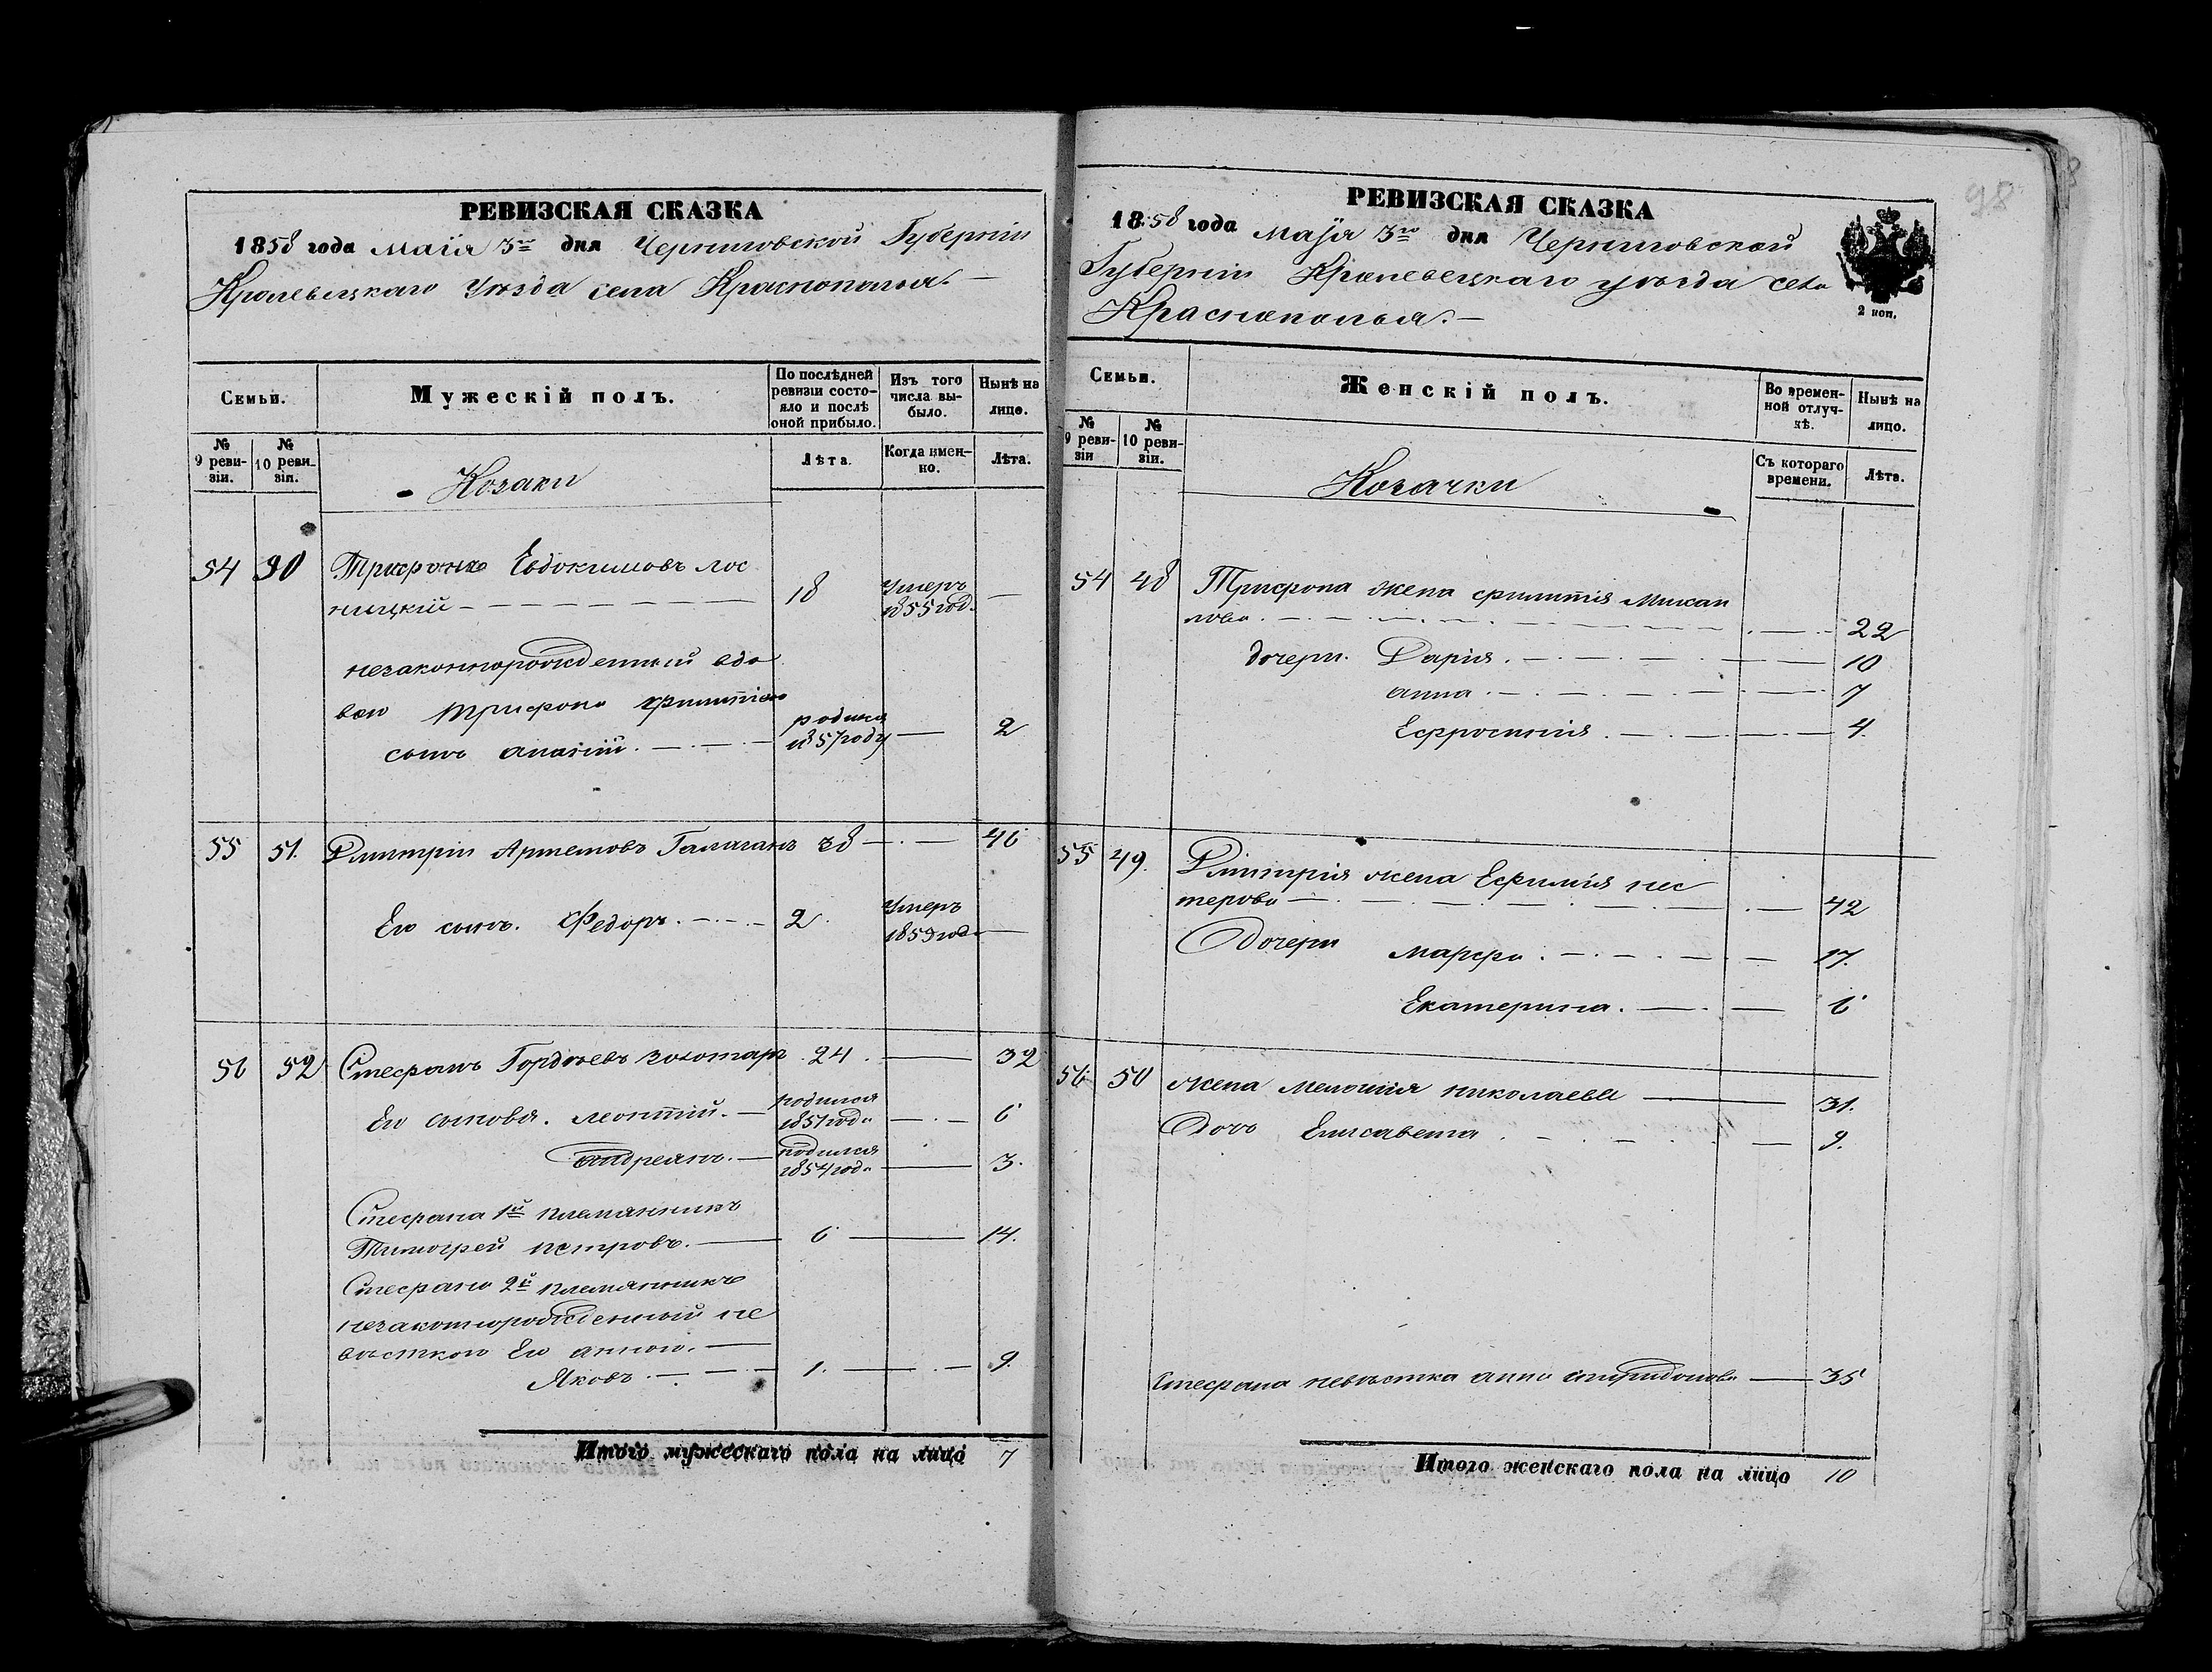 98
РЕВИЗСКАЯ СКАЗКА
1858 года маія 3го дня Черниговской Губерніи
Кролевецкаго Уѣзда села Краснополья.
Семьи.
Мужескій полъ.
По послѣдней
ревизіи состо-
яло и послѣ
оной прибыло.
Изъ того
числа вы-
было.
Нынѣ на
лицо.
№
9 реви-
зіи.
№
10 реви-
зіи.
Козаки
Лѣта.
Когда имен-
но.
Лѣта.
54 50 Евдокимовъ лос
ницкій 18 Умеръ
1855 год.
незаконнорожденный вдо
вою Трифона
сынъ ананій. родился
1857 году 2
55 51. Дмитрій Артемовъ Галаганъ 38 46
Его сынъ. Федоръ. 2 Умеръ
56 52 Стефанъ Гордѣевъ золотарь 24. 32
Его сыновья. леонтій. родился
1851 год. 6
андреянъ. родился
1854 год. 3.
Стефана 1й племянникъ
Тимофей петровъ. 6 14.
Стефана 2й племянникъ
незаконнорожденный не
вѣсткою Его анною.
Яковъ. 1. 9.
Итого мужескаго пола на лицо 7
РЕВИЗСКАЯ СКАЗКА
1858 года маія 3го дня Черниговской
Губерніи Кролевецкаго уѣзда села
Краснополья.
2 коп.
Семьи.
Женскій полъ.
Во времен-
ной отлуч-
кѣ.
Нынѣ на
лицо.
№
9 реви-
зіи
№
10 реви-
зіи.
Козачки
Съ котораго
времени.
Лѣта.
54 48 Трифона жена Михаи
лова. 22
дочери. Дарія. 10
анна. 7
Ефросинія. 4.
55 49. Дмитрія жена Ефимія нес
терова 42
Дочери марфа. 17.
Екатерина. 6
56 50 жена меланія николаева 31.
Дочь Елисавета 9.
Стефана невѣстка анна спиридонова 35
Итого женскаго пола на лицо 10